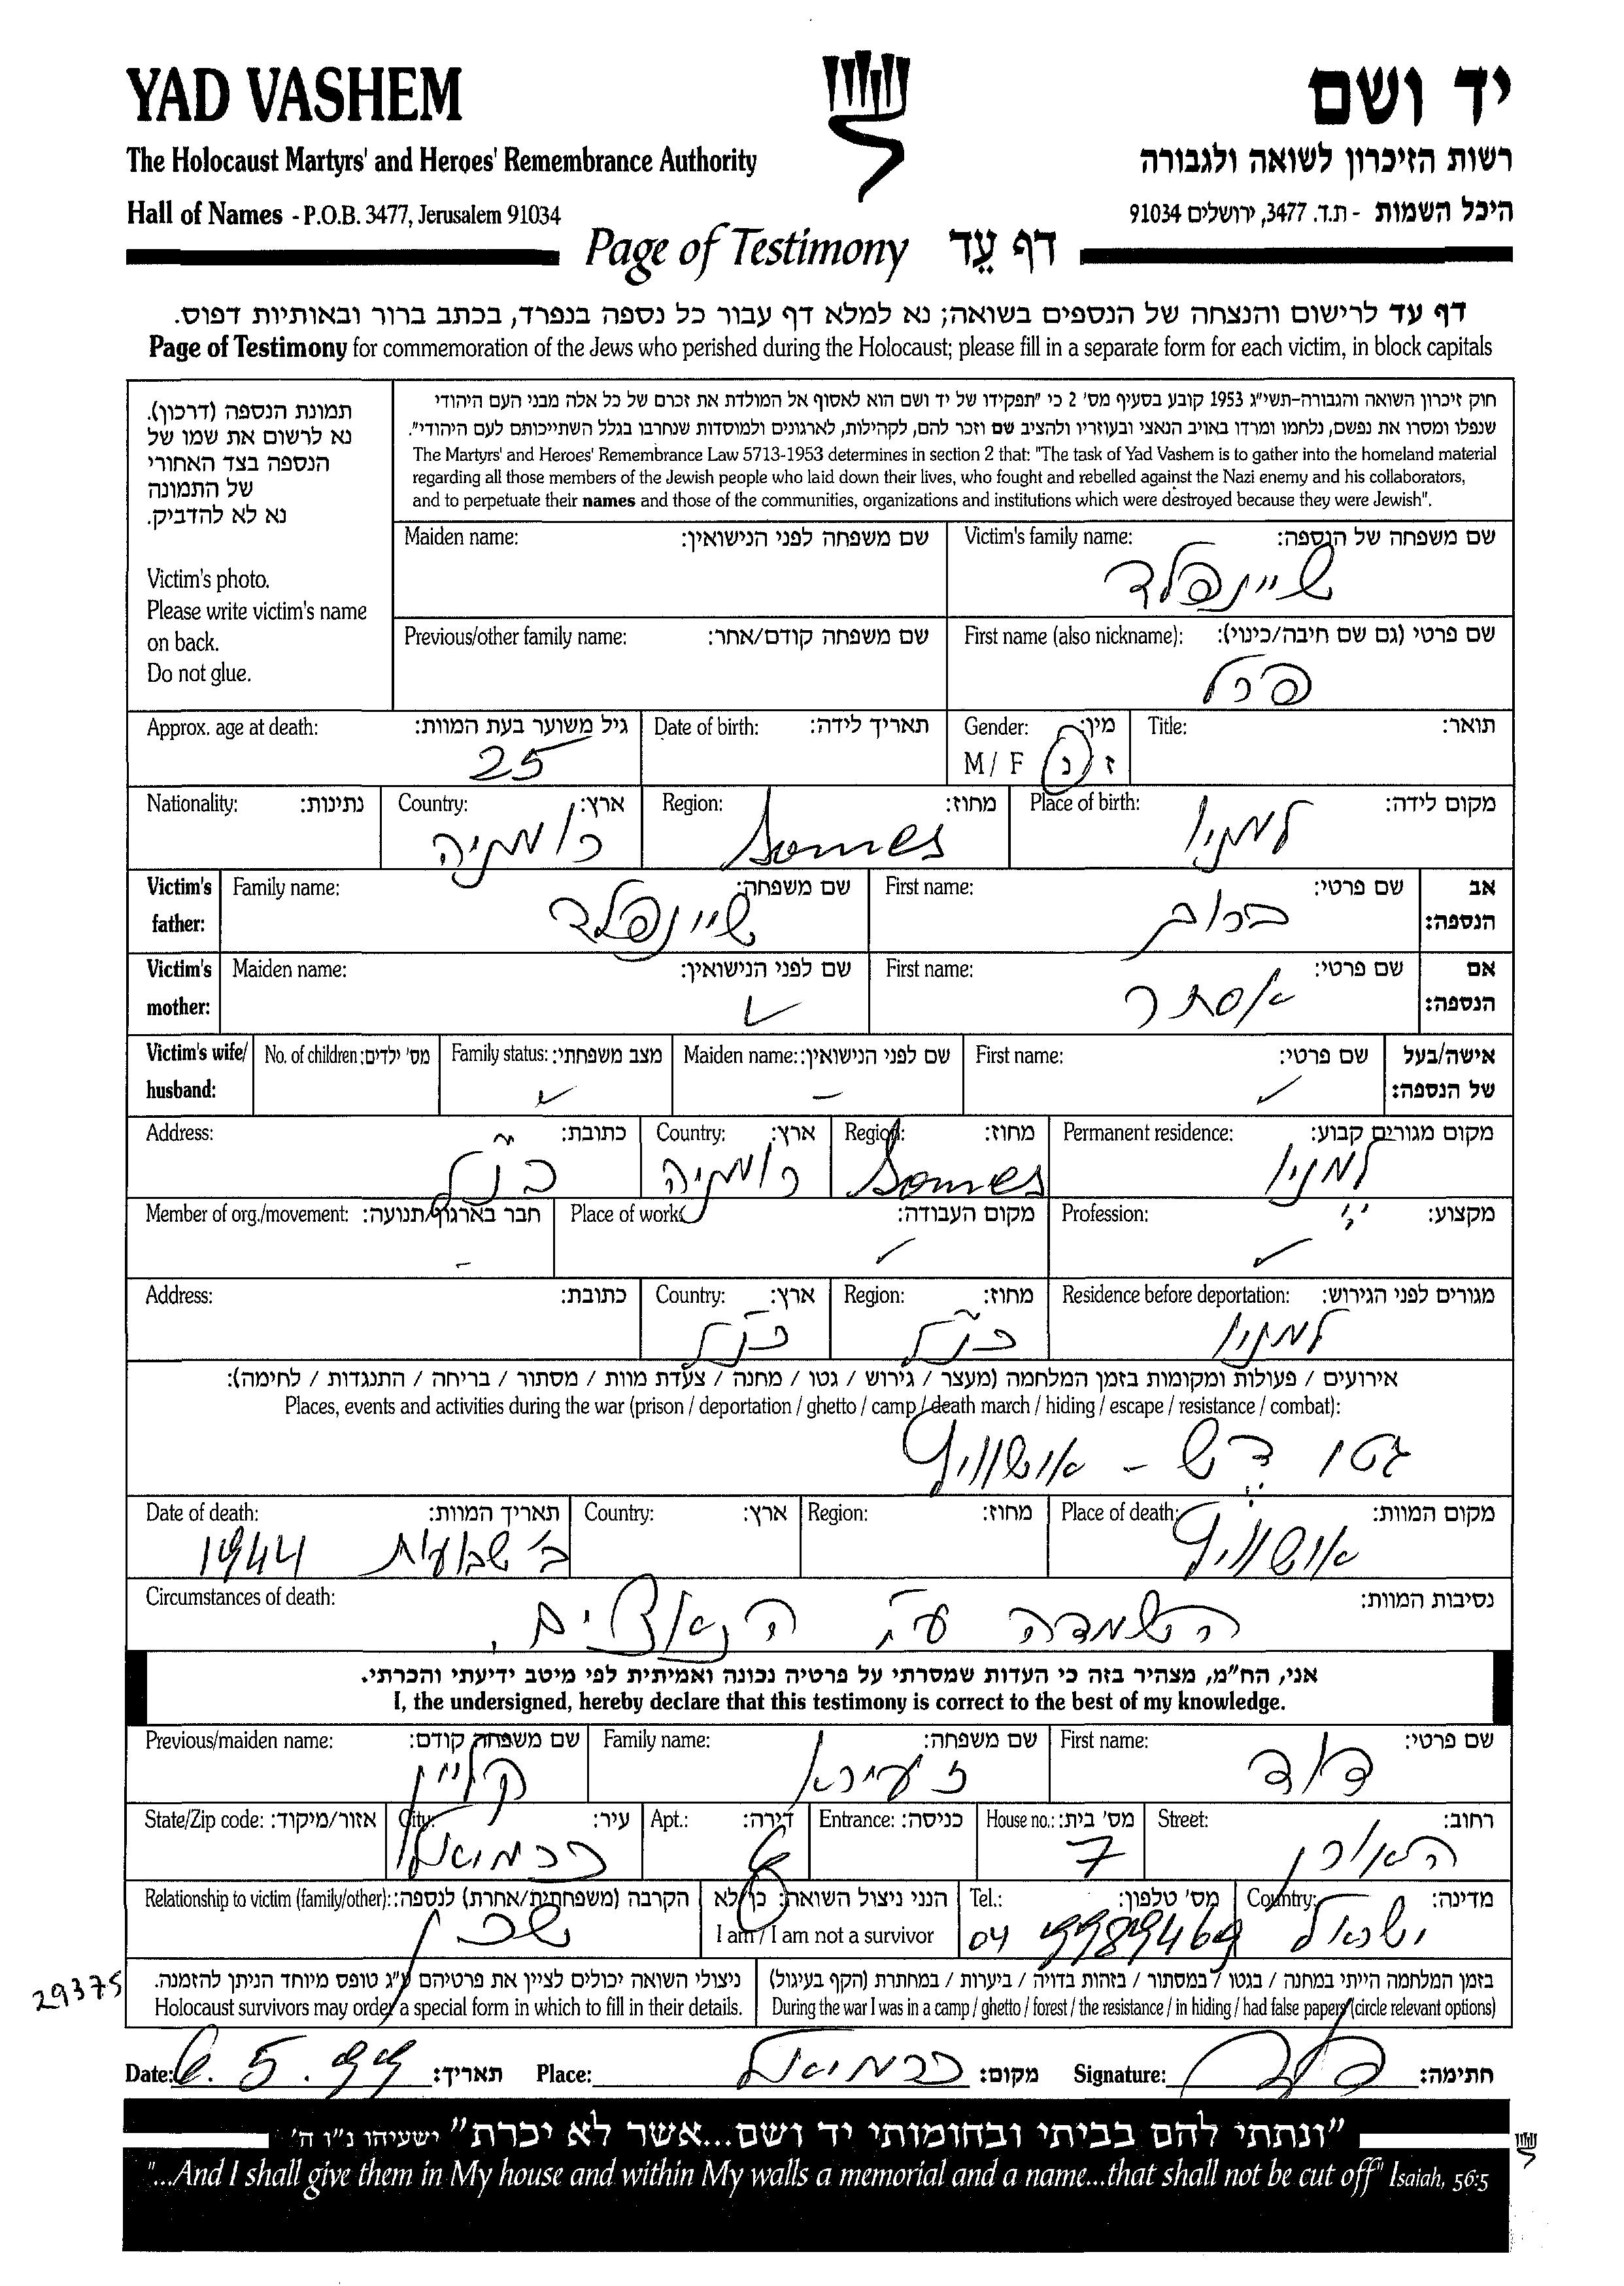 YAD VASHEM
יד ושם
The Holocaust Martyrs' and Heroes' Remembrance Authority
רשות הזיכרון לשואה ולגבורה
Hall of Names - P.O.B. 3477, Jerusalem 91034
היכל השמות - ת.ד. 3477, ירושלים 91034
Page of Testimony דף עֵד
דף עד לרישום והנצחה של הנספים בשואה; נא למלא דף עבור כל נספה בנפרד, בכתב ברור ובאותיות דפוס.
Page of Testimony for commemoration of the Jews who perished during the Holocaust; please fill in a separate form for each victim, in block capitals
תמונת הנספה (דרכון).
נא לרשום את שמו של
הנספה בצד האחורי
של התמונה
נא לא להדביק.
Victim's photo.
Please write victim's name
on back.
Do not glue.
חוק זיכרון השואה והגבורה-תשי"ג 1953 קובע בסעיף מס' 2 כי "תפקידו של יד ושם הוא לאסוף אל המולדת את זכרם של כל אלה מבני העם היהודי
שנפלו ומסרו את נפשם, נלחמו ומרדו באויב הנאצי ובעוזריו ולהציב שם וזכר להם, לקהילות, לארגונים ולמוסדות שנחרבו בגלל השתייכותם לעם היהודי".
The Martyrs' and Heroes' Remembrance Law 5713-1953 determines in section 2 that: "The task of Yad Vashem is to gather into the homeland material
regarding all those members of the Jewish people who laid down their lives, who fought and rebelled against the Nazi enemy and his collaborators,
and to perpetuate their names and those of the communities, organizations and institutions which were destroyed because they were Jewish".
Maiden name: שם משפחה לפני הנישואין:
Victim's family name: שם משפחה של הנספה:
שיינפלד
Previous/other family name: שם משפחה קודם/אחר:
First name (also nickname): שם פרטי (גם שם חיבה/כינוי):
פרל
Approx. age at death: גיל משוער בעת המוות:
25
Date of birth: תאריך לידה:
Gender: מין:
M / F ז / נ
Title: תואר:
Nationality: נתינות:
Country: ארץ:
רומניה
Region: מחוז:
Somes
Place of birth: מקום לידה:
למניו
Victim's father: Family name: שם משפחה:
שיינפלד
First name: שם פרטי:
ברוך
אב הנספה:
Victim's mother: Maiden name: שם לפני הנישואין:
First name: שם פרטי:
אסתר
אם הנספה:
Victim's wife/ husband:
No. of children: מס' ילדים:
Family status: מצב משפחתי:
Maiden name: שם לפני הנישואין:
First name: שם פרטי:
אישה/בעל של הנספה:
Address: כתובת:
כנ"ל
Country: ארץ:
רומניה
Region: מחוז:
Somes
Permanent residence: מקום מגורים קבוע:
למניו
Member of org./movement: חבר בארגון/תנועה:
Place of work: מקום העבודה:
Profession: מקצוע:
Address: כתובת:
Country: ארץ:
כנ"ל
Region: מחוז:
כנ"ל
Residence before deportation: מגורים לפני הגירוש:
למניו
אירועים / פעולות ומקומות בזמן המלחמה (מעצר / גירוש / גטו / מחנה / צעדת מוות / מסתור / בריחה / התנגדות / לחימה):
Places, events and activities during the war (prison / deportation / ghetto / camp / death march / hiding / escape / resistance / combat):
גטו דש - אושוויץ
Date of death: תאריך המוות:
ב' שבועות 1944
Country: ארץ:
Region: מחוז:
Place of death: מקום המוות:
אושוויץ
Circumstances of death: נסיבות המוות:
השמדה ע"י הנאצים.
אני, הח"מ, מצהיר בזה כי העדות שמסרתי על פרטיה נכונה ואמיתית לפי מיטב ידיעתי והכרתי.
I, the undersigned, hereby declare that this testimony is correct to the best of my knowledge.
Previous/maiden name: שם משפחה קודם:
קליין
Family name: שם משפחה:
זעירא
First name: שם פרטי:
דוד
State/Zip code: אזור/מיקוד:
City: עיר:
כרמיאל
Apt.: דירה:
6
Entrance: כניסה:
House no.: מס' בית:
7
Street: רחוב:
האורן
Relationship to victim (family/other): הקרבה (משפחתית/אחרת) לנספה:
שכן
הנני ניצול השואה: כן/לא
I am / I am not a survivor
Tel.: מס' טלפון:
04 9989469
Country: מדינה:
ישראל
ניצולי השואה יכולים לציין את פרטיהם ע"ג טופס מיוחד הניתן להזמנה.
Holocaust survivors may order a special form in which to fill in their details.
בזמן המלחמה הייתי במחנה / בגטו / במסתור / בזהות בדויה / ביערות / במחתרת (הקף בעיגול)
During the war I was in a camp / ghetto / forest / the resistance / in hiding / had false papers (circle relevant options)
29375
Date: 6.5.99 תאריך:
Place: כרמיאל מקום:
Signature: חתימה:
"ונתתי להם בביתי ובחומותי יד ושם...אשר לא יכרת" ישעיהו נ"ו ה'
"...And I shall give them in My house and within My walls a memorial and a name...that shall not be cut off" Isaiah, 56:5